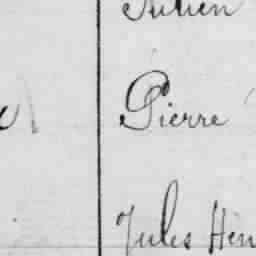 Julien
Pierre
Jules Hen